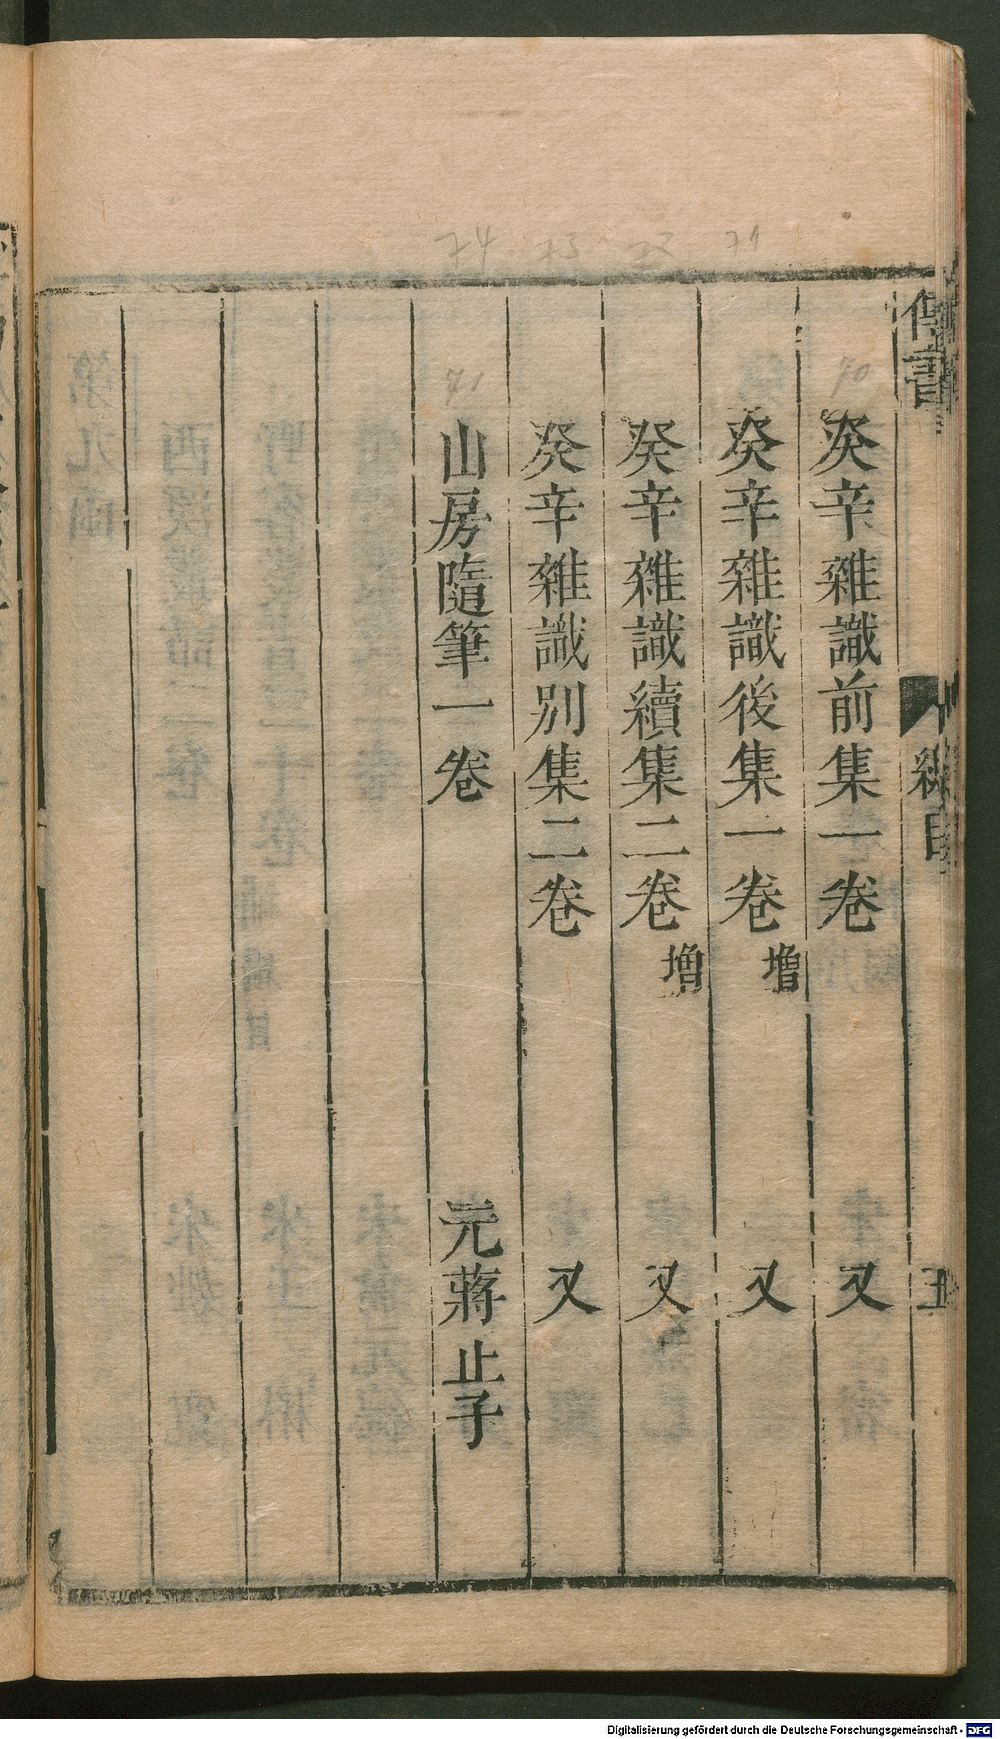 癸辛雜識前集一卷 又
癸辛雜識後集一卷 增 又
癸辛雜識續集二卷 增 又
癸辛雜識別集二卷 又
山房隨筆一卷 元蔣止子
總目
71
74
70
71
Digitalisierung gefördert durch die Deutsche Forschungsgemeinschaft - DFG